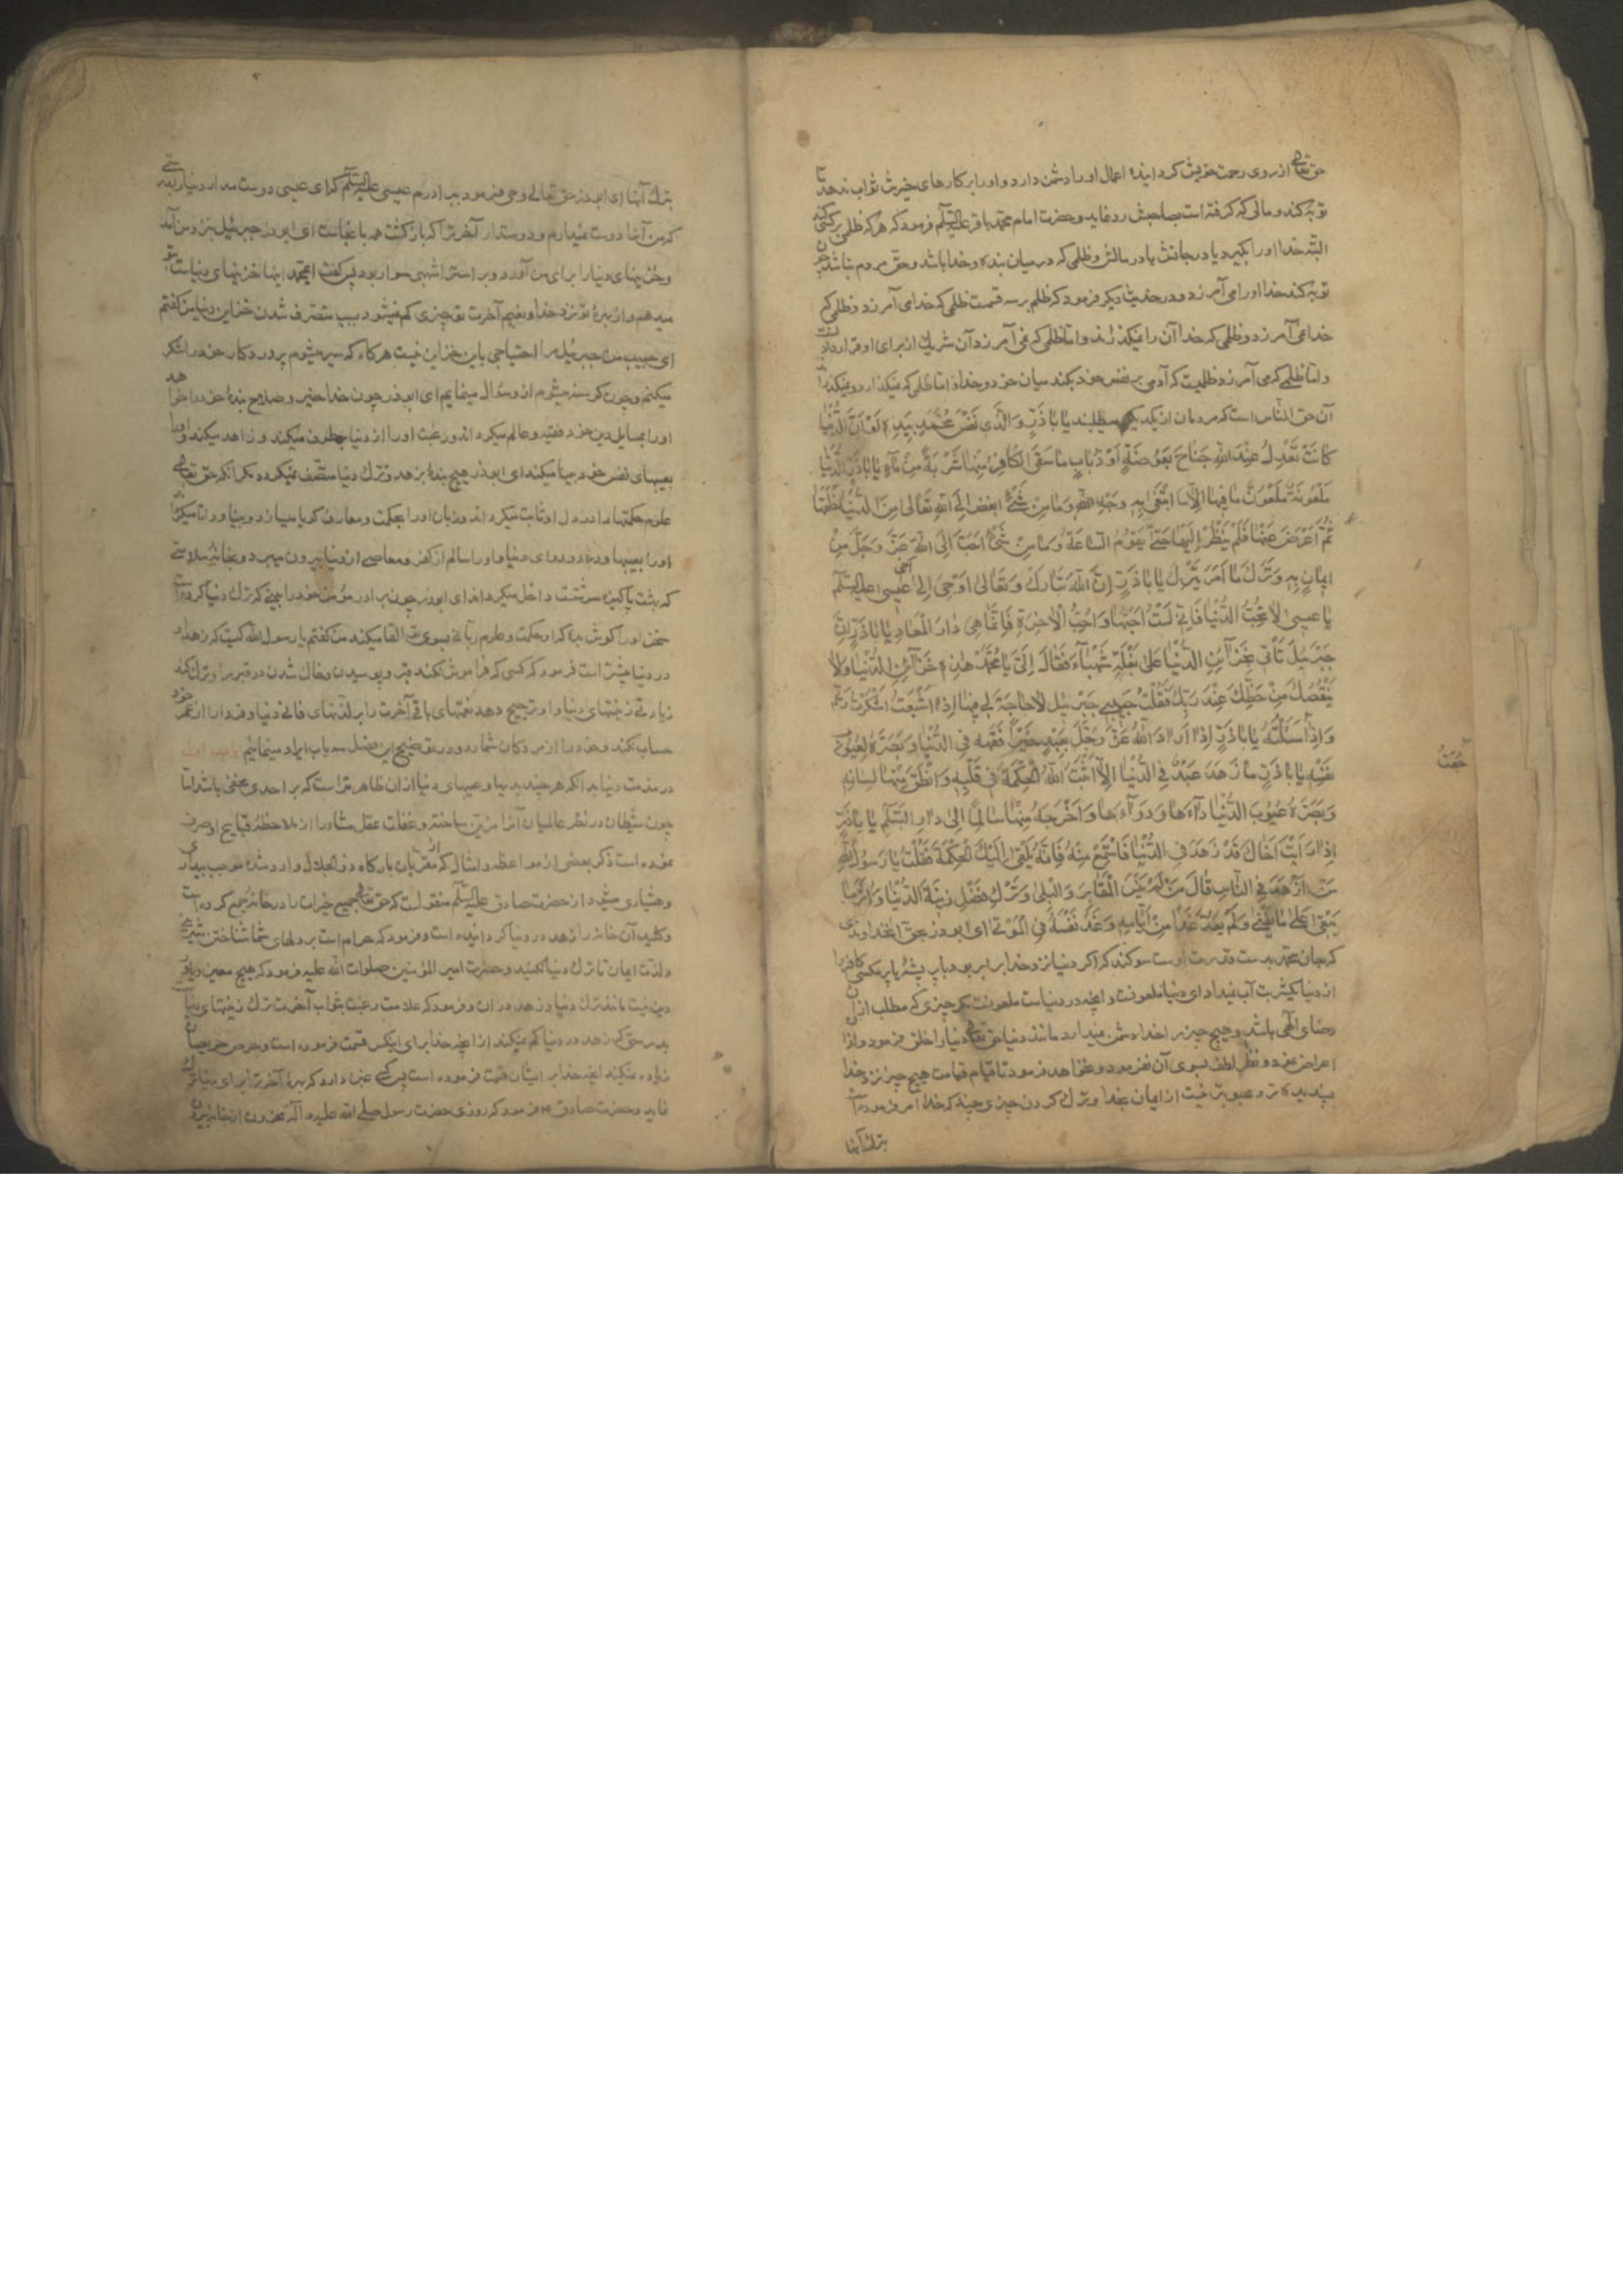 حق تعالی از روی رحمت خویش کردانیده اعمال او را دشمن دارد و او را بر کارهای خیرش ثواب ندهد تا
توبه کند و مالی که کرفته است بصاحبش رد نماید و حضرت امام محمد باقر علیه السلام فرمود که هر که ظلمی بر کسی کند
البته خدا او را بکیرد یا در جانش یا در مالش و ظلمی که در میان بنده و خدا باشد و حق مردم نباشد چون
توبه کند خدا او را می آمرزد و در حدیث دیکر فرمود که ظلم بر سه قسمت ظلمی که خدا می آمرزد و ظلمی که
خدا نمی آمرزد و ظلمی که خدا آن را نمیکذراند و اما ظلمی که نمی آمرزد آن شریك از برای او قرار دادنست
و اما ظلمی که می آمرزد ظلمیست که آدمی بر نفس خود بکند میان خود و خدا و اما ظلمی که نمیکذارد و نمیکذراند
آن حق الناس است که مردمان از یکدیکر میطلبند یَا بَاذَرٍّ وَالَّذی نَفْسُ مُحَمَّدٍ بِیَدِهِ لَوْ اَنَّ الدُّنْیَا
کَانَتْ تَعْدِلُ عِنْدَ اللهِ جَنَاحَ بَعُوضَةٍ اَوْ ذُبَابٍ مَا سَقَی الْکَافِرَ مِنْهَا شَرْبَةً مِنْ مَآءٍ یَا بَاذَرٍّ الدُّنْیَا
مَلْعُونَةٌ مَلْعُونٌ مَا فِیهَا اِلَّا مَا ابْتُغِیَ بِهِ وَجْهُ اللهِ وَمَا مِنْ شَیْءٍ اَبْغَضُ اِلَی اللهِ تَعَالی مِنَ الدُّنْیَا خَلَقَهَا
ثُمَّ اَعْرَضَ عَنْهَا فَلَمْ یَنْظُرْ اِلَیْهَا حَتّی تَقُومَ السَّاعَةُ وَمَا مِنْ شَیْءٍ اَحَبَّ اِلَی اللهِ عَزَّ وَجَلَّ مِنْ
اِیمَانٍ بِهِ وَتَرْكِ مَا اَمَرَ بِتَرْكِهِ یَا بَاذَرٍّ اِنَّ اللهَ تَبَارَكَ وَتَعَالی اَوْحی اِلی اَخی عیسی علیه السلم
یَا عیسی لَا تُحِبَّ الدُّنْیَا فَاِنّی لَسْتُ اُحِبُّهَا وَاَحِبَّ الْآخِرَةَ فَاِنَّمَا هِیَ دَارُ الْمَعَادِ یَا بَاذَرٍّ اِنَّ
جَبْرَئیلَ اَتَانی بِخَزَآئِنِ الدُّنْیَا عَلی بَغْلَةٍ شَهْبَآءَ فَقَالَ لی یَا مُحَمَّدُ هذِهِ خَزَآئِنُ الدُّنْیَا وَلَا
یَنْقُصُكَ مِنْ حَظِّكَ عِنْدَ رَبِّكَ فَقُلْتُ حَبیبی جَبْرَئیلُ لَا حَاجَةَ لی فِیهَا اِذَا شَبِعْتُ شَکَرْتُ رَبّی
وَاِذَا جُعْتُ سَئَلْتُهُ یَا بَاذَرٍّ اِذَا اَرَادَ اللهُ عَزَّ وَجَلَّ بِعَبْدٍ خَیْرًا فَقَّهَهُ فِی الدُّنْیَا وَبَصَّرَهُ بِعُیُوبِ
نَفْسِهِ یَا بَاذَرٍّ مَا زَهِدَ عَبْدٌ فِی الدُّنْیَا اِلَّا اَثْبَتَ اللهُ الْحِکْمَةَ فی قَلْبِهِ وَاَنْطَقَ بِهَا لِسَانَهُ
وَبَصَّرَهُ عُیُوبَ الدُّنْیَا وَدَآءَهَا وَدَوَآءَهَا وَاَخْرَجَهُ مِنْهَا سَالِمًا اِلی دَارِ السَّلَامِ یَا بَاذَرٍّ
اِذَا رَاَیْتَ اَخَاكَ قَدْ زَهِدَ فِی الدُّنْیَا فَاسْتَمِعْ مِنْهُ فَاِنَّهُ یُلْقی اِلَیْكَ الْحِکْمَةَ فَقُلْتُ یَا رَسُولَ اللهِ
مَنْ اَزْهَدُ النَّاسِ قَالَ مَنْ لَمْ یَنْسَ الْمَقَابِرَ وَالْبِلی وَتَرَكَ فَضْلَ زِینَةِ الدُّنْیَا وَآثَرَ مَا
یَبْقی عَلی مَا یَفْنی وَلَمْ یَعُدَّ غَدًا مِنْ اَیَّامِهِ وَعَدَّ نَفْسَهُ فِی الْمَوْتی ای ابوذر بحق آن خداوندی
که جان محمد بدست قدرت اوست سوکند که اکر دنیا نزد خدا برابر بود با پر پشه یا پر مکسی کافر را
از دنیا یکشربت آب نمیداد ای دنیا ملعونست و آنچه در دنیاست ملعونست مکر چیزی که مطلب از آن
رضای الهی باشد و هیچ چیز را خدا دشمن نمیدارد مانند دنیا حق تعالی دنیا را خلق فرمود و از آن
اعراض نمود و نظر لطف بسوی آن نفرمود و نخواهد فرمود تا قیام قیامت و هیچ چیز نزد خدا
پسندیده تر و محبوبتر نیست از ایمان بخدا و ترك کردن چیزی چند که خدا امر فرموده است
بترك آنها
جُعْتُ
بترك آنها ای ابوذر حق تعالی وحی فرمود ببرادرم عیسی علیه السلم که ای عیسی دوست مدار دنیا را بدرستی
که من آنرا دوست نمیدارم و دوست دار آخرت را که بازکشت همه بآنجاست ای ابوذر جبرئیل نزد من آمد
و خزینهای دنیا را برای من آورد و بر استر اشهبی سوار بود پس کفت ای محمد اینها خزینهای دنیاست بتو
میدهم و از بهرۀ تو نزد خدا و نعیم آخرت تو چیزی کم نمیشود بسبب متصرف شدن خزاین دنیا من کفتم
ای حبیب من جبرئیل مرا احتیاجی باین خزاین نیست هرکاه که سیر میشوم پروردکار خود را شکر
میکنم و چون کرسنه میشوم از او سؤال مینمایم ای ابوذر چون خدا خیر و صلاح بندۀ خود را خواهد
او را بمسایل دین خود فقیه و عالم میکرداند و رغبت او را از دنیا برطرف میکند و زاهد میکند و او را
بعیبهای نفس خود بینا میکند ای ابوذر هیچ بندۀ بزهد و ترك دنیا متصف نمیکردد مکر آنکه حق تعالی
علوم حکمتها را در دل او ثابت میکرداند و زبان او را بحکمت و معارف کویا میسازد و بینا و دانا میکرداند
او را بعیبها و درد و دوای دنیا و او را سالم از کفر و معاصی از دنیا بیرون میبرد و بخانۀ سلامتی
که بهشت پاکیزه سرشتست داخل میکرداند ای ابوذر چون برادر مؤمن خود را ببینی که ترك دنیا کرده است
سخن او را کوش بده که او حکمت و علوم ربانی بسوی تو القا میکند من کفتم یا رسول الله کیست که زهد او
در دنیا بیشتر است فرمود که کسی که فراموش نکند قبر و پوسیدن و خاك شدن در قبر را و ترك کند
زیادتی زینتهای دنیا را و ترجیح دهد نعمتهای باقی آخرت را بر لذتهای فانی دنیا و فردا را از عمر خود
حساب نکند و خود را از مردکان شمارد و در توضیح این فصل سه باب ایراد مینمائیم باب اول
در مذمت دنیا بدانکه هر چند بدیها و عیبهای دنیا از آن ظاهرتر است که بر احدی مخفی باشد اما
چون شیطان در نظر عالمیان آنرا مزین ساخته و غفلت عقل مشاورا از ملاحظۀ قبایح او صرف
نموده است ذکر بعضی از مواعظ و امثال که از مقربان بارکاه ذو الجلال وارد شده موجب بیداری
و هشیاری میشود از حضرت صادق علیه السلم منقولست که حق تعالی جمیع خیرات را در خانۀ جمع کرده است
و کلید آن خانه را زهد در دنیا کردانیده است و فرمود که حرام است بر دلهای شما شناختن شیرینی
و لذت ایمان تا ترك دنیا نکنید و حضرت امیر المؤمنین صلوات الله علیه فرمود که هیچ معین و یاور
دین نیست مانند ترك دنیا و زهد در آن و فرمود که علامت رغبت بثواب آخرت ترك زینتهای دنیاست
بدرستی که زهد در دنیا کم نمیکند از آنچه خدا برای اینکس قسمت فرموده است و حرص حریصان
زیاده نمیکند آنچه خدا بر ایشان قسمت فرموده است پس کسی غبن دارد که بهرۀ آخرت را برای دنیا ترك
نماید و حضرت صادق ع فرمود که روزی حضرت رسول صلی الله علیه و آله محزون از خانه بیرون